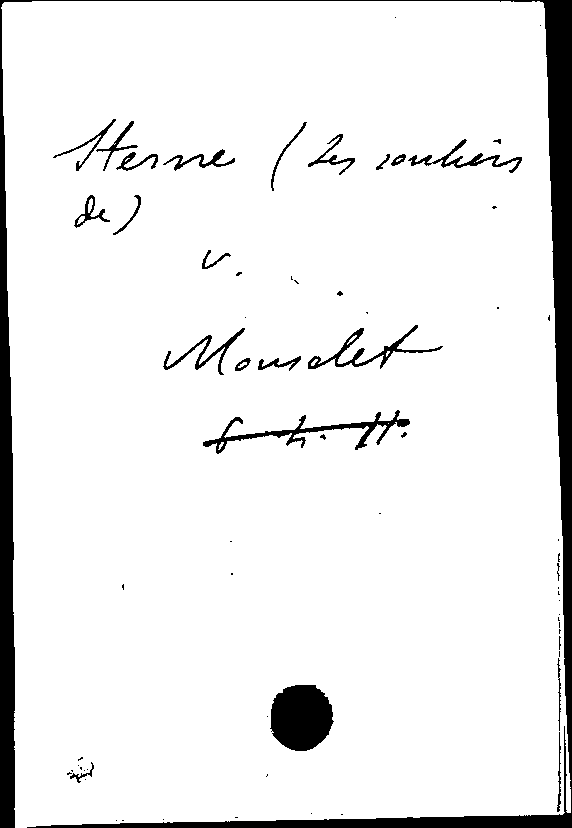 Sterne (Les souliers
de)
v.
Monselet
6 L. H.